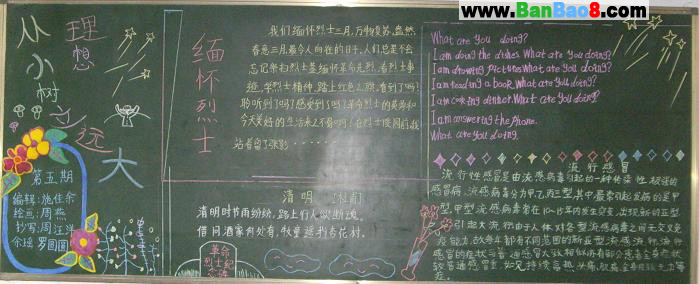 www.BanBao8.com
从小树立远大
理想
第五期
编辑:施佳余
绘画:周燕
抄写:周江洋
余瑶 罗圆圆
缅怀烈士
我们缅怀烈士三月,万物复苏,盎然
春意三月,最令人向往的日子,人们总是不会
忘记祭扫烈士墓缅怀革命先烈,看烈士事
迹,学烈士精神,踏上红色之旅,看到了吗?
聆听到了吗?感受到了吗?革命烈士的英勇和
今天美好的生活来之不易
站着留了张影......
清明 杜牧
清明时节雨纷纷,路上行人欲断魂。
借问酒家何处有,牧童遥指杏花村。
革命
烈士纪
念碑
What are you doing?
I am doing the dishes. What are you doing?
I am drawing pictures. What are you doing?
I am reading a book. What are you doing?
I am cooking dinner. What are you doing?
I am answering the phone.
What are you doing.
流行感冒
流行性感冒是由流感病毒引起的一种传染性极强的
感冒病.流感病毒分为甲,乙,丙三型,其中最常引起发病的是甲
型,甲型流感病毒常在10-15年内发生变异,出现新的亚型,
引起大流行.由于人体对各型流感病毒之间无交叉免
疫能力,故每年都有不同范围的新亚型流感流行.流行
感冒的症状与普通感冒大致相似,所有部分患者全身症状
较普通感冒重,如见持续高热,头痛,肌痛,全身极疲乏力等
症。